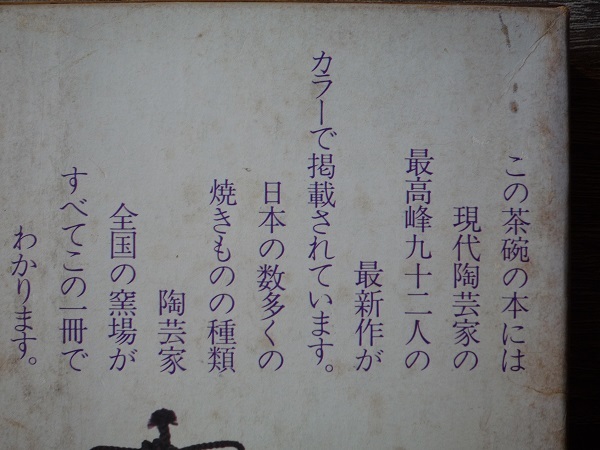 この茶碗の本には
現代陶芸家の
最高峰九十二人の
最新作が
カラーで掲載されています。
日本の数多くの
焼きものの種類
陶芸家
全国の窯場が
すべてこの一冊で
わかります。